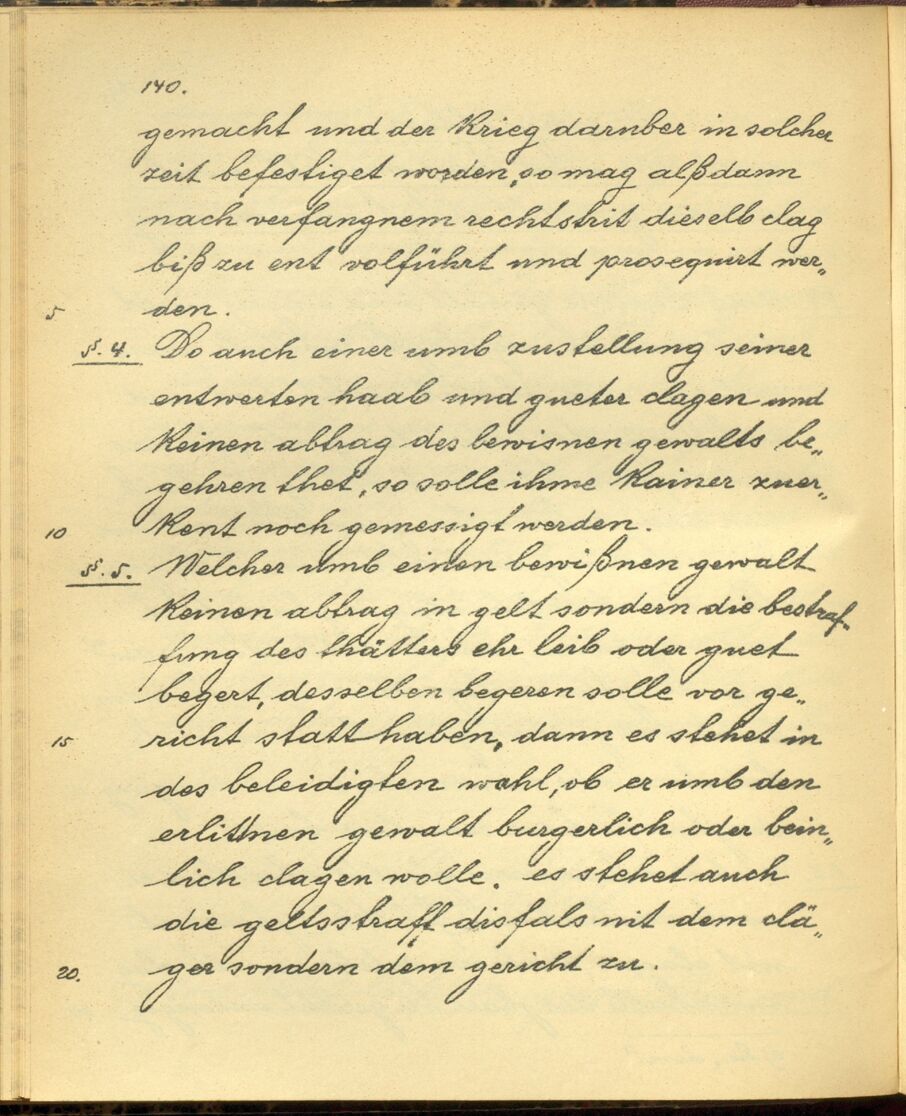 140.
gemacht und der Krieg darnber in solcher
zeit befestiget worden, so mag alßdann
nach verfangnem rechtstrit dieselb clag
biß zu ent volführt und prosequirt wer„
5 den.
§. 4. Do auch einer umb zustellung seiner
entwerten haab und gueter clagen und
Keinen abtrag des bewisnen gewalts be„
gehren thet, so solle ihme Kainer zuer„
10 Kent noch gemessigt werden.
§. 5. Welcher umb einen bewißnen gewalt
Keinen abtrag in gelt sondern die bestraf„
fung des thätters ehr leib oder guet
begert, desselben begeren solle vor ge„
15 richt statt haben, dann es stehet in
des beleidigten wahl, ob er umb den
erlittnen gewalt burgerlich oder bein„
lich clagen wolle. es stehet auch
die geltsstraff disfals nit dem clä„
20. ger sondern dem gericht zu.